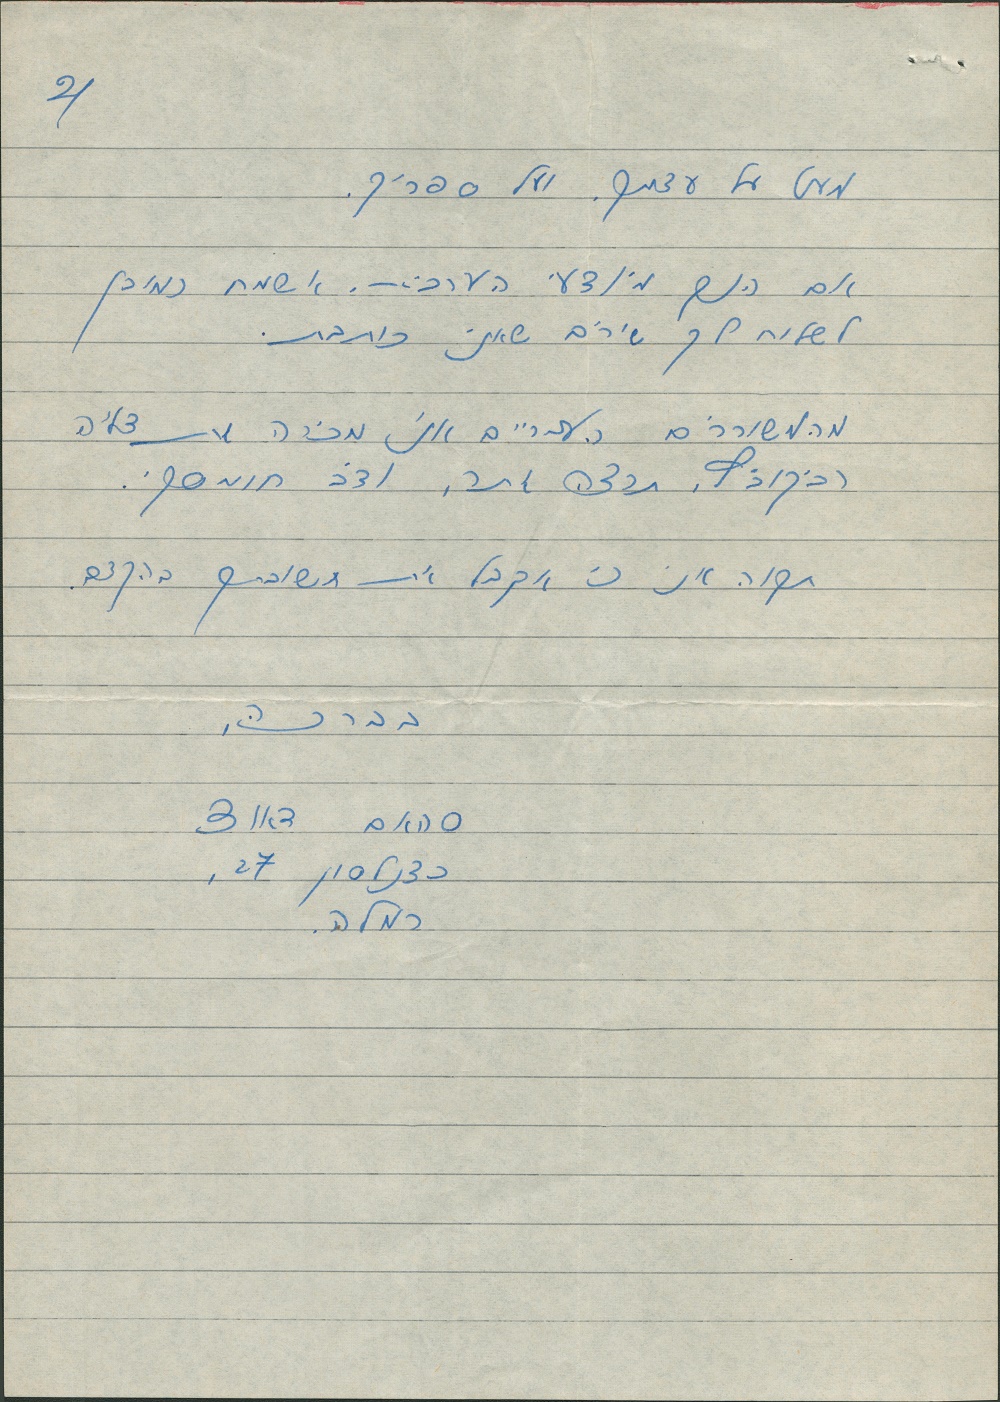 2/
מעט על עצמך. ועל ספריך.
אם הנך מיודעי הערבית. אשמח כמובן
לשלוח לך שירים שאני כותבת.
מהמשוררים העבריים אני מכירה את דליה
רביקוביץ, נתן זך,
תקוה אני כי אקבל את תשובתך בהקדם.
בברכה,
סהאם דאוד
כצנלסון 27,
רמלה.